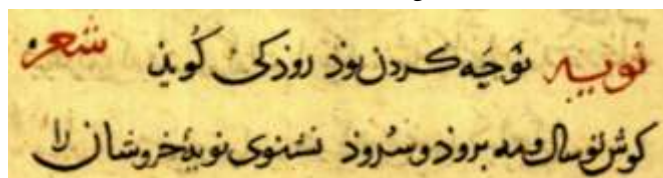 نویه نوحَه کردن بوذ روذکی کُویذ شعر
کوش تو سال و مه بروذ و سُروذ نشنوی نویهٔ خروشان را